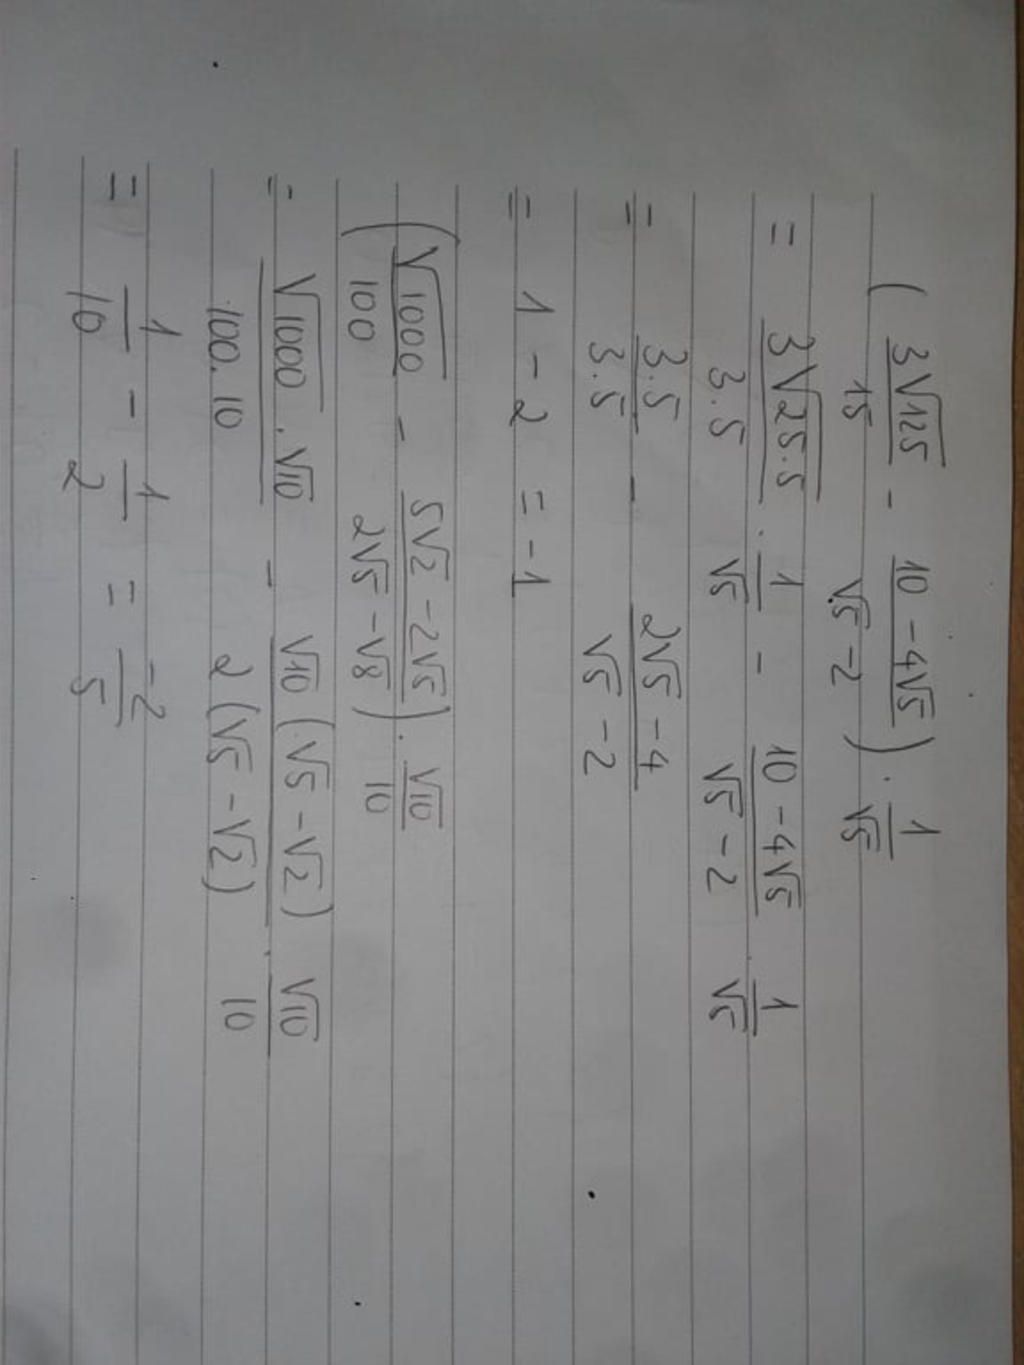 ( 3√125 / 15 - 10 - 4√5 / √5 - 2 ) . 1 / √5
= 3√25.5 / 3.5 . 1 / √5 - 10 - 4√5 / √5 - 2 . 1 / √5
= 3.5 / 3.5 - 2√5 - 4 / √5 - 2
= 1 - 2 = -1
( √1000 / 100 - 5√2 - 2√5 / 2√5 - √8 ) . √10 / 10
= √1000 . √10 / 100.10 - √10 (√5 - √2) / 2 (√5 - √2) . √10 / 10
= 1 / 10 - 1 / 2 = -2 / 5